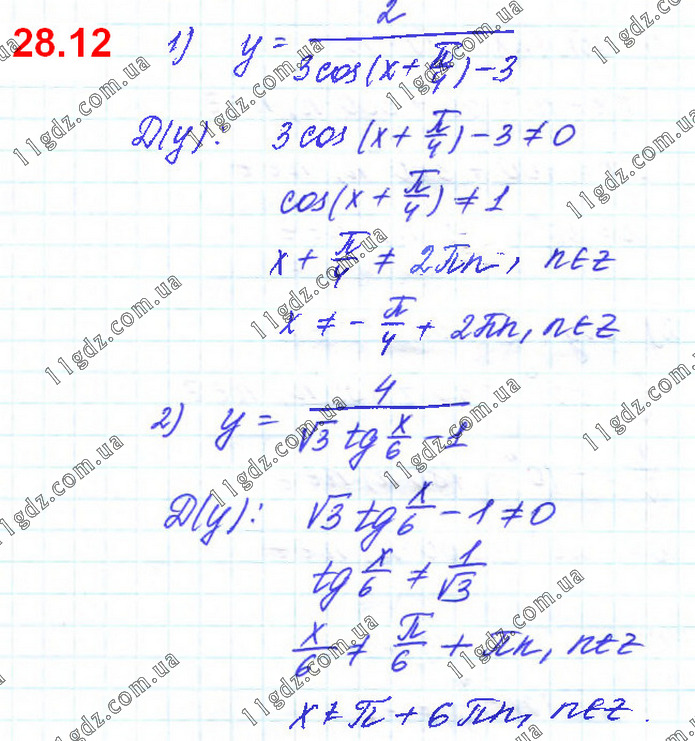 28.12 1) y = 2/(3cos(x + π/4) - 3)
D(y): 3cos(x + π/4) - 3 ≠ 0
cos(x + π/4) ≠ 1
x + π/4 ≠ 2πn, n∈z
x ≠ - π/4 + 2πn, n∈z
2) y = 4/(√3 tg x/6 - 1)
D(y): √3 tg x/6 - 1 ≠ 0
tg x/6 ≠ 1/√3
x/6 ≠ π/6 + πn, n∈z
x ≠ π + 6πn, n∈z.
11gdz.com.ua